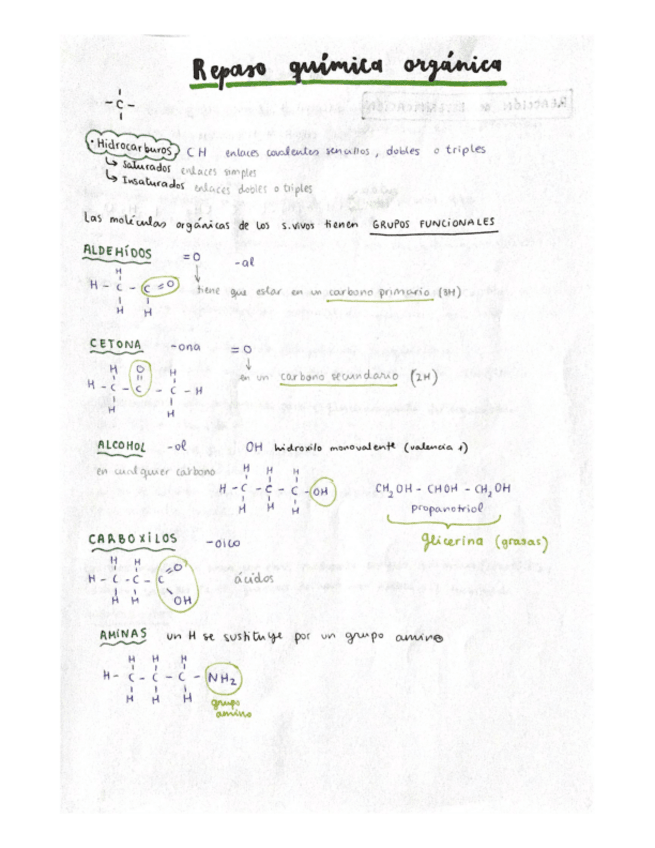 Repaso química orgánica
- C -
· Hidrocarburos CH enlaces covalentes sencillos, dobles o triples
↳ Saturados enlaces simples
↳ Insaturados enlaces dobles o triples
Las moléculas orgánicas de los s.vivos tienen GRUPOS FUNCIONALES
ALDEHÍDOS =O -al
H
H - C - C =O tiene que estar en un carbono primario (3H)
H H
CETONA -ona =O
H O H en un carbono secundario (2H)
H - C - C - C - H
H H
ALCOHOL -ol OH hidroxilo monovalente (valencia 1)
en cualquier carbono
H H H
H - C - C - C - OH CH₂OH - CHOH - CH₂OH
H H H propanotriol
glicerina (grasas)
CARBOXILOS -oico
H H =O
H - C - C - C ácidos
H H OH
AMINAS un H se sustituye por un grupo amino
H H H
H - C - C - C - NH₂
H H H grupo
amino